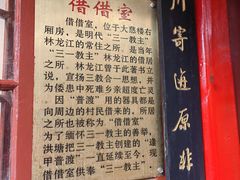 借借室
借借室，位于大慈楼右
厢房，是明代“三一教主”
林龙江的常住之所。是当年
“三一教主”林龙江的借居
之所。林龙江曾于此著书立
说，宣扬三教合一思想，并
在去世之忌难乡亲超度亡灵
因“普渡”用的器具都是
向周边的村民借来的，故居
所也被称为“借借室”。
为了缅怀三一教主的善举，
洪塘把三一教主创建的“逢
甲普渡”一直延续至今，
借借室供奉“三一教主
川寄迹原非